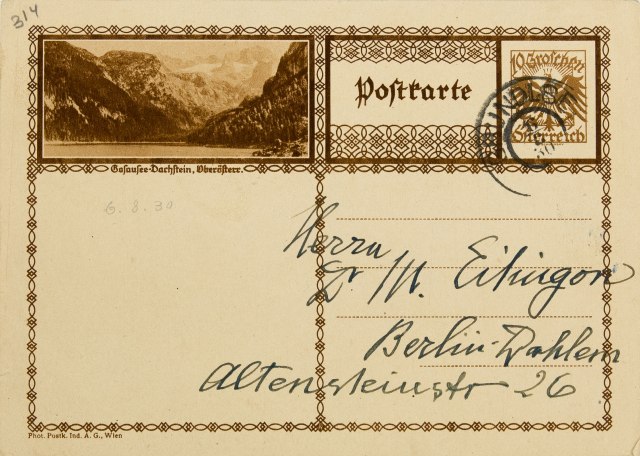 314
10 Groschen
Österreich
GRUNDLSEE
Postkarte
Gosausee-Dachstein, Oberösterr.
6.8.30
Herrn
Dr M. Eitingon
Berlin-Dahlem
Altensteinstr 26
Phot. Postk. Ind. A. G., Wien